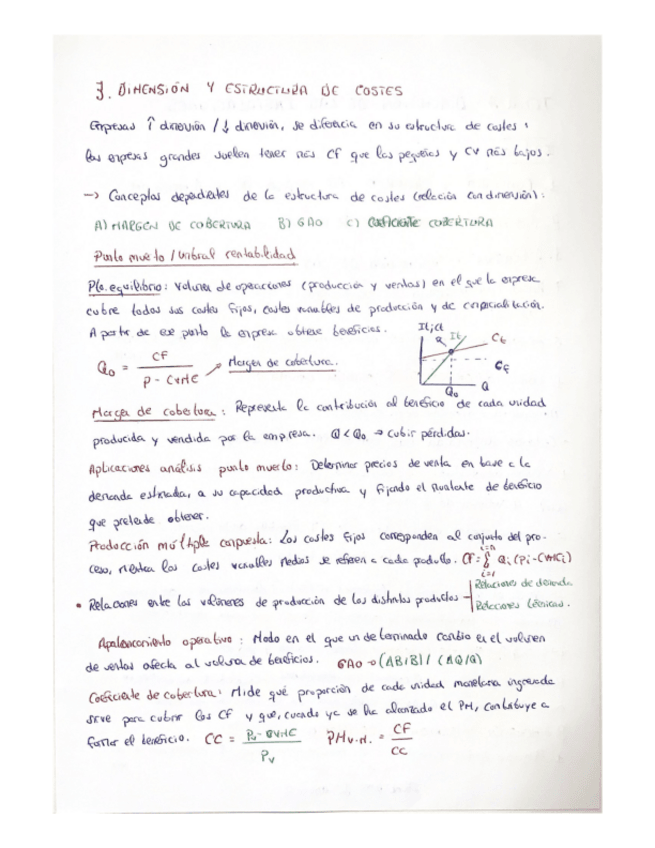 3. DIMENSIÓN Y ESTRUCTURA DE COSTES
Empresas ↑ dimensión / ↓ dimensión, se diferencia en su estructura de costes:
las empresas grandes suelen tener más CF que las pequeñas y CV más bajos.
→ Conceptos dependientes de la estructura de costes (relación con dimensión):
A) MARGEN DE COBERTURA B) GAO C) COEFICIENTE COBERTURA
Punto muerto / Umbral rentabilidad
Pto. equilibrio: Volumen de operaciones (producción y ventas) en el que la empresa
cubre todos sus costes fijos, costes variables de producción y de comercialización.
A partir de ese punto la empresa obtiene beneficios.
It, Ct
It
Ct
CF
Q0
Q
Q0 = CF / P - CVMC → Margen de cobertura.
Margen de cobertura: Representa la contribución al beneficio de cada unidad
producida y vendida por la empresa. Q < Q0 → Cubrir pérdidas.
Aplicaciones análisis punto muerto: Determinar precios de venta en base a la
demanda estimada, a su capacidad productiva y fijando el montante de beneficio
que pretende obtener.
Producción múltiple compuesta: Los costes fijos corresponden al conjunto del pro-
ceso, mientras los costes variables medios se refieren a cada producto. CF = Σ i=1 i=n Qi (Pi - CVMCi)
• Relaciones entre los volúmenes de producción de los distintos productos
Relaciones de demanda
Relaciones técnicas.
Apalancamiento operativo: Modo en el que un determinado cambio en el volumen
de ventas afecta al volumen de beneficios. GAO → (ΔB/B) / (ΔQ/Q)
Coeficiente de cobertura: Mide qué proporción de cada unidad monetaria ingresada
sirve para cubrir los CF y que, cuando ya se ha alcanzado el PM, contribuye a
formar el beneficio. CC = Pv - CVMC / Pv PMu.m. = CF / CC